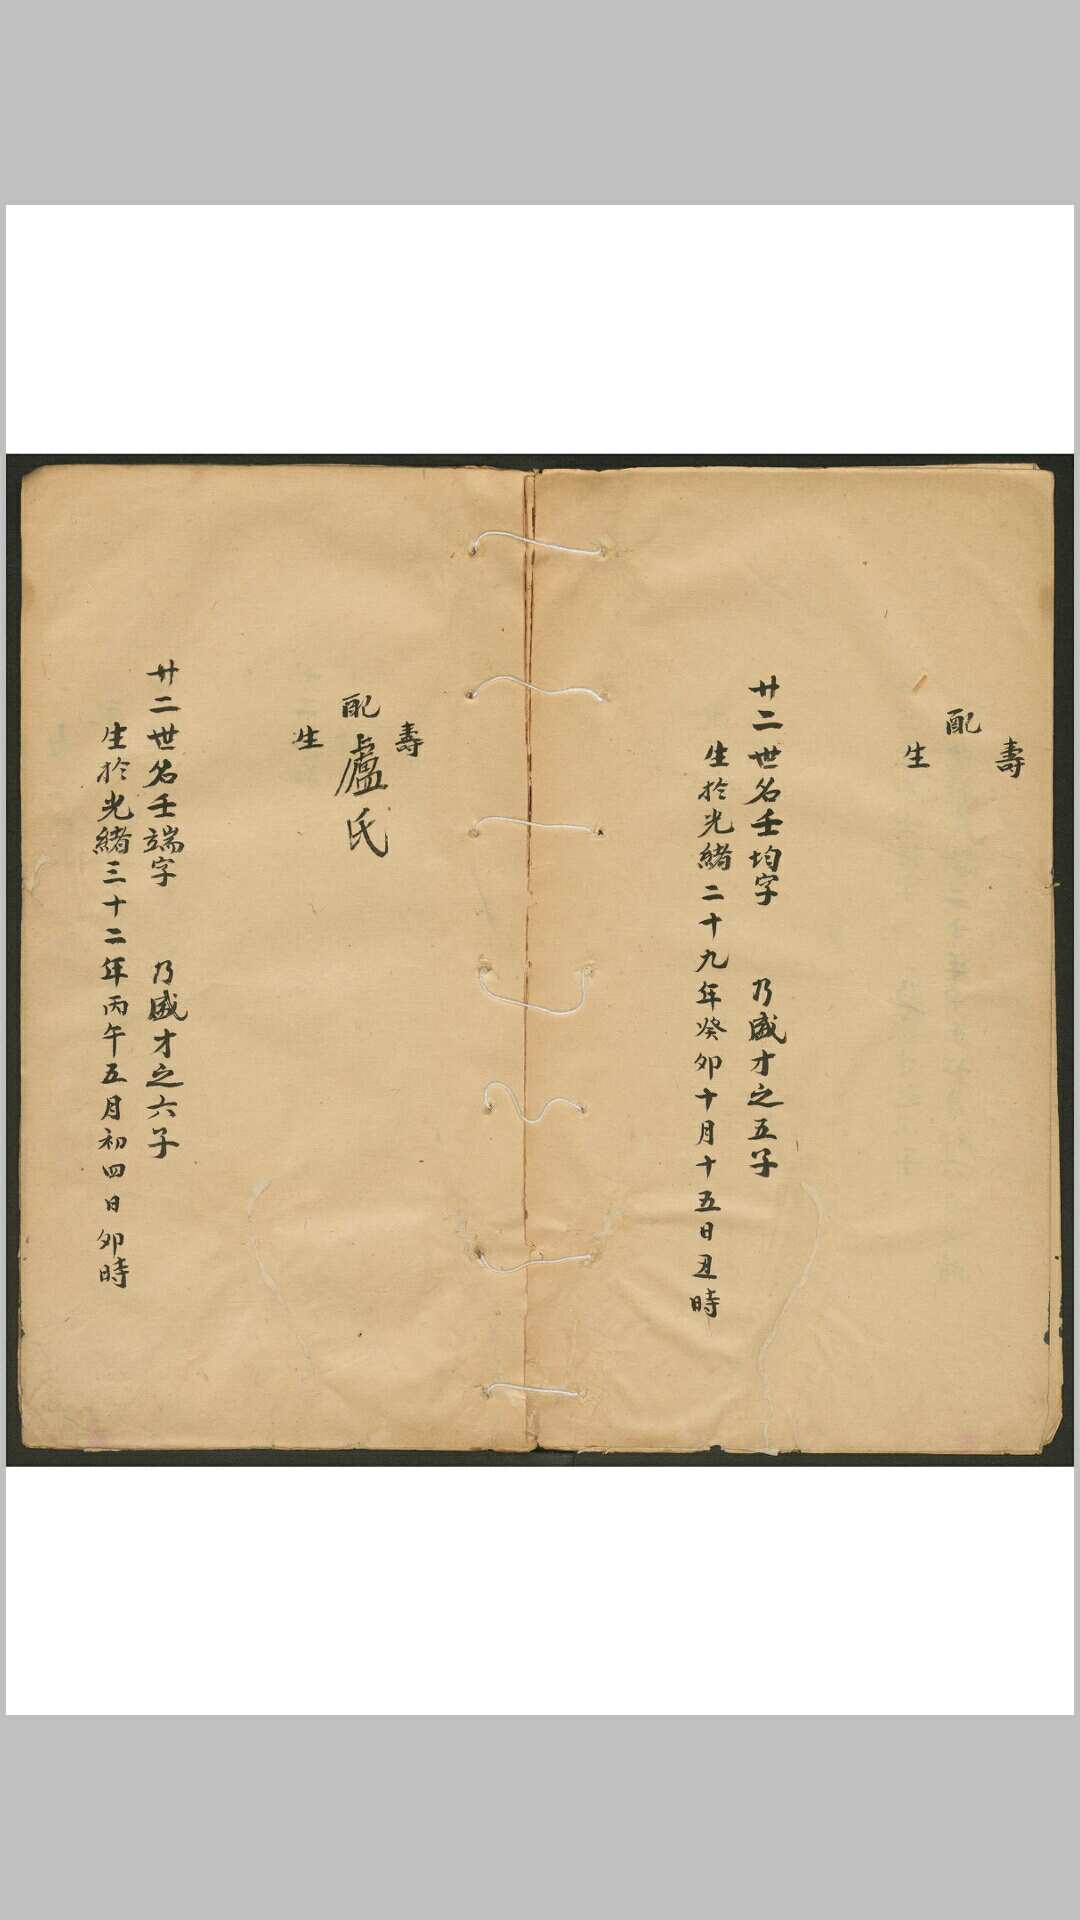 壽
配
生
廿二世名壬均字 乃盛才之五子
生於光緒二十九年癸卯十月十五日丑時
壽
配盧氏
生
廿二世名壬端字 乃盛才之六子
生於光緒三十二年丙午五月初四日卯時